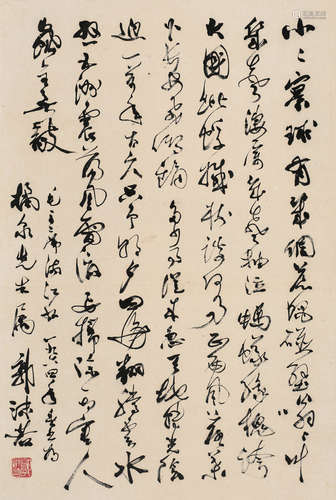 小〻寰球有幾個蒼蠅碰壁嗡〻叫
幾聲凄厲幾聲抽泣螞蟻緣槐誇
大國蚍蜉撼樹談何易正西風落葉
下長安飛鳴鏑多少事從來急天地轉光陰
迫一萬年太久只爭朝夕四海翻騰雲水
怒五洲震蕩風雷激要掃除一切害人
蟲全無敵
毛主席滿江紅一九六四年春書為
橘泉先生屬 郭沫若